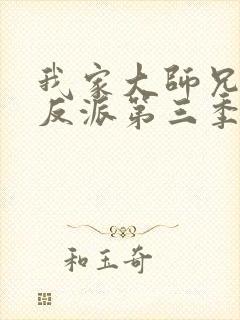 我家大師兄
反派第三季
和玉奇